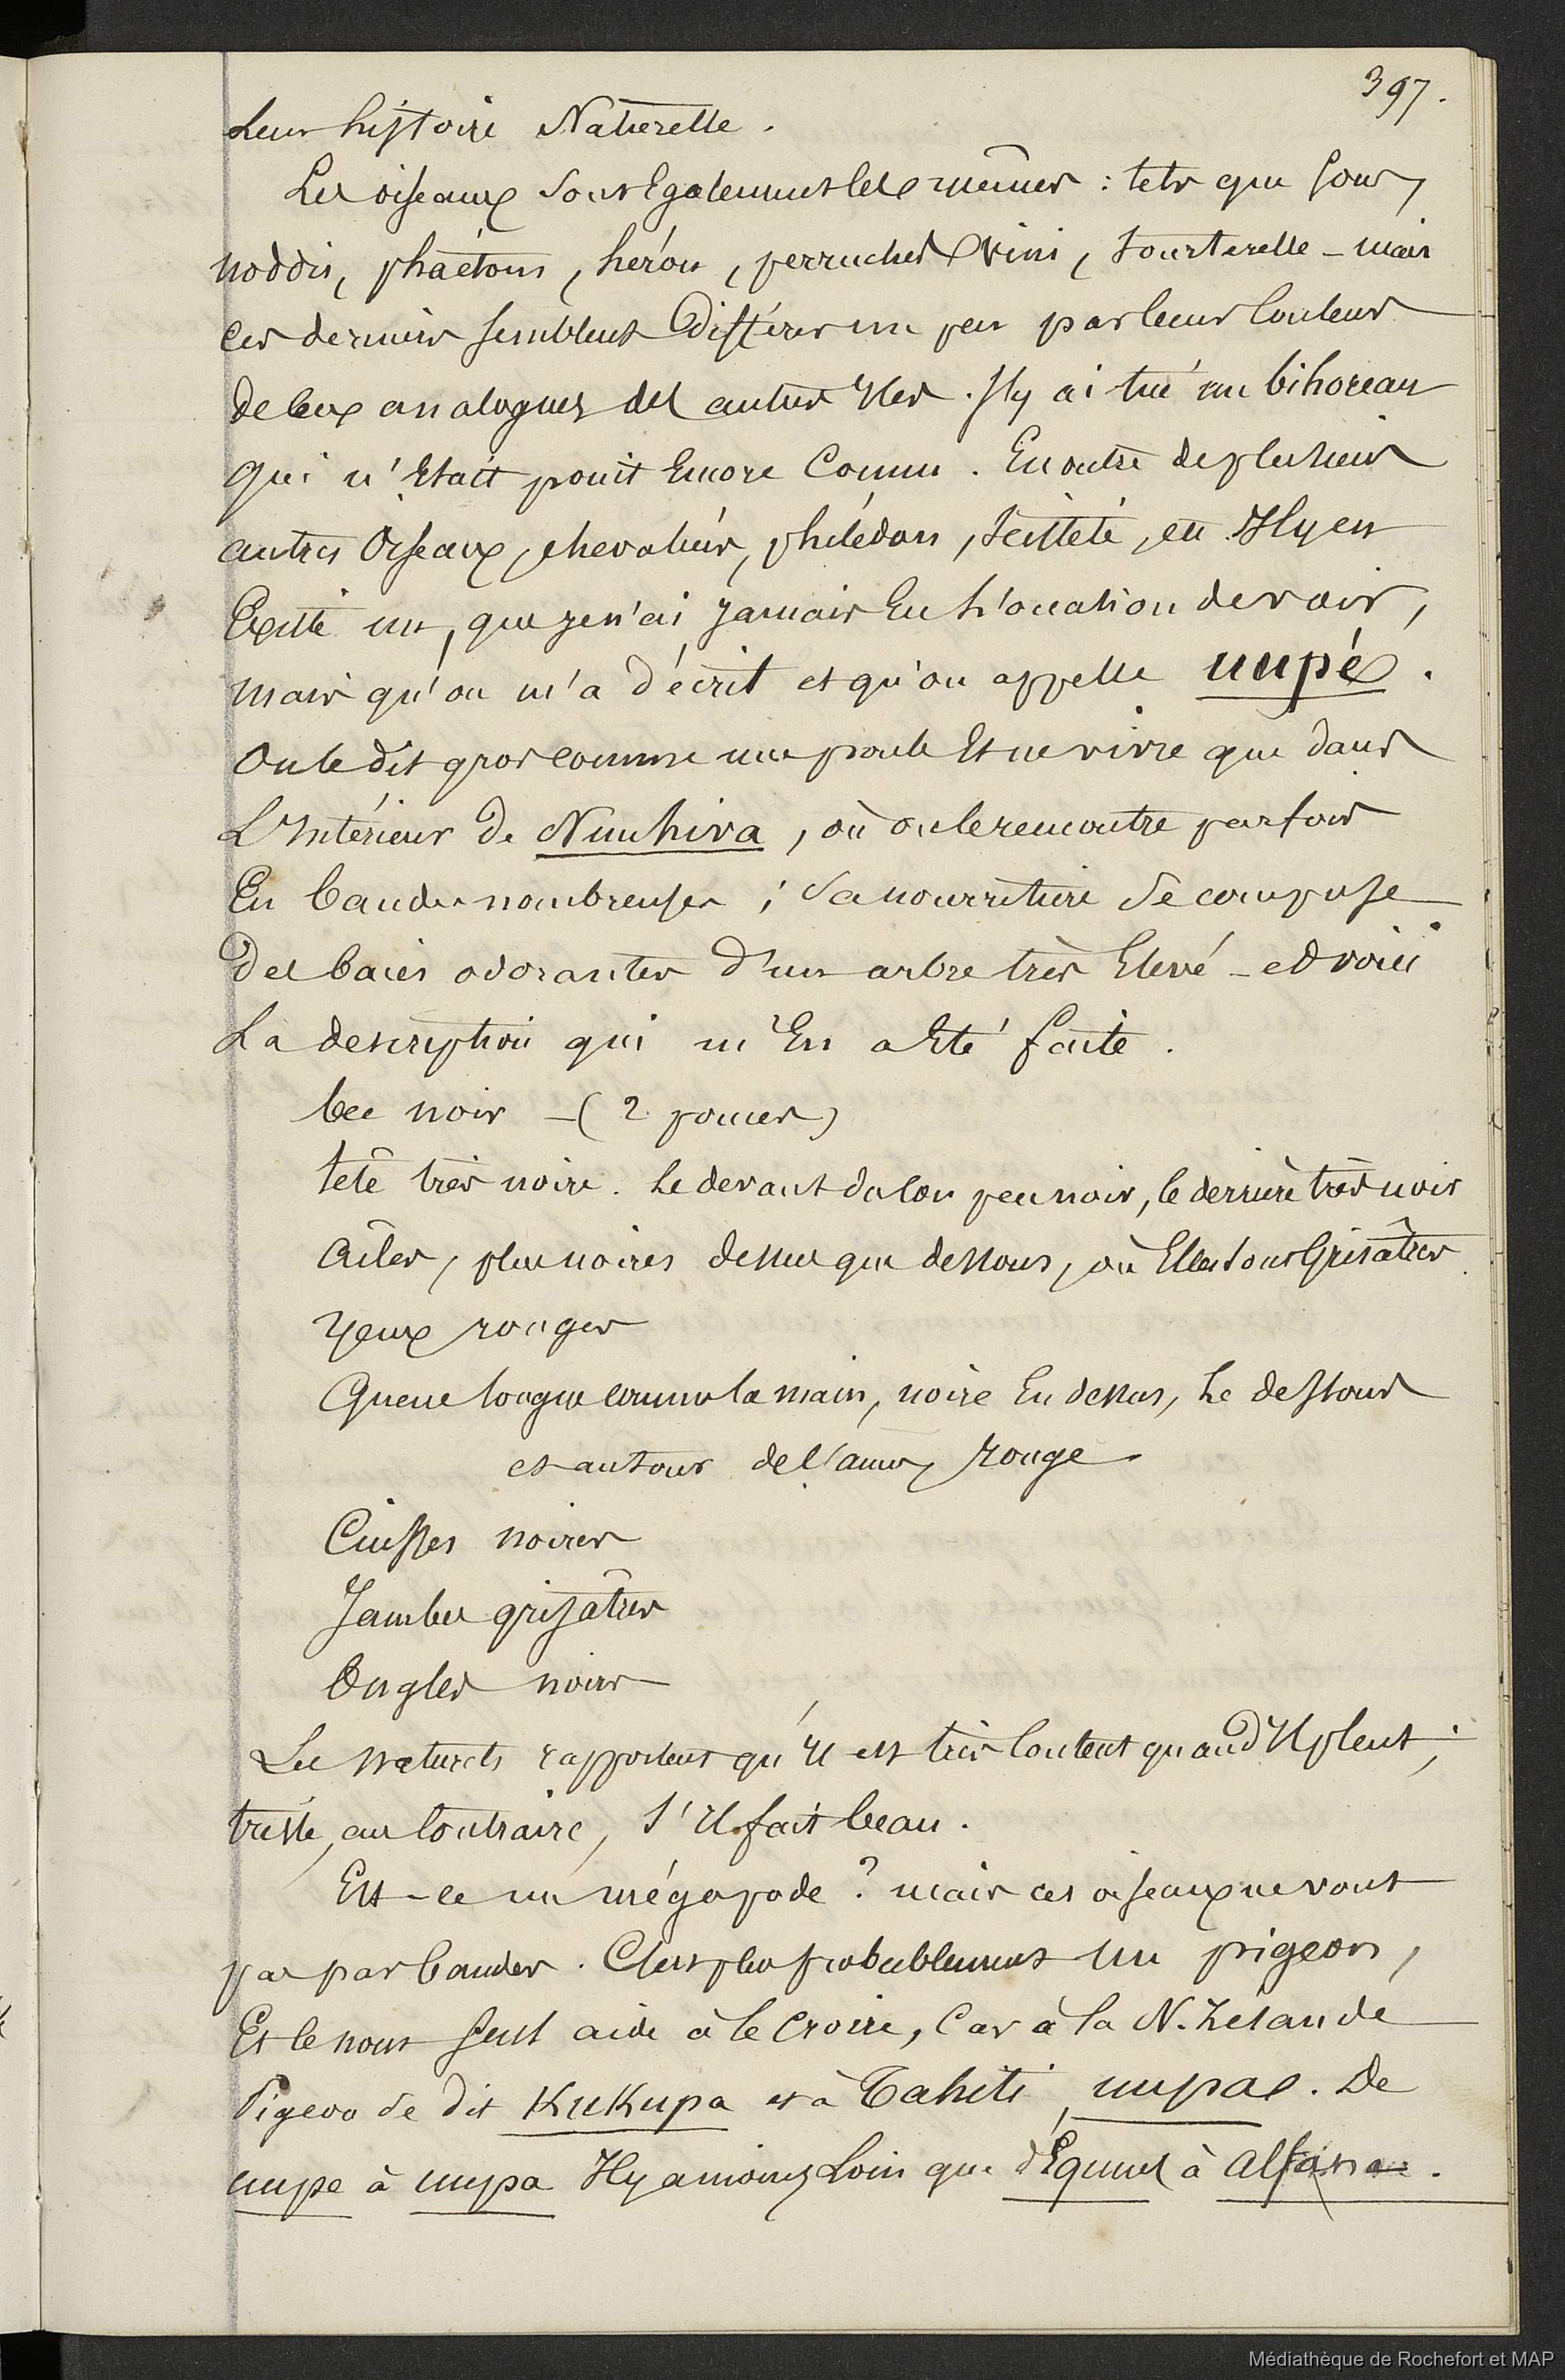 397.
Leur histoire Naturelle.
Les oiseaux sont Egalement les mêmes : tels que fous,
noddis, phaétons, héron, perruches vini, tourterelle - mais
ces derniers semblent différer un peu par leur Couleur
de Ceux analogues des autres Iles. J'y ai tué un bihoreau
qui n'Etait point Encore Connu. En outre de plusieurs
autres Oiseaux, chevaliers, philédon, &a. Il y en
Existe un, que je n'ai jamais Eu l'occasion de voir,
mais qu'on m'a décrit et qu'on appelle uupé.
On le dit gros comme une poule Et ne vivre que dans
L'Intérieur de Nuuhiva, où on le rencontre parfois
En bandes nombreuses ; sa nourriture se compose
des baies odorantes d'un arbre très Elevé - et voici
La description qui m'En a Eté faite.
bec noir - (2 pouces)
tête très noire. Le devant du Cou peu noir, le derrière très noir
Ailes, plus noires dessus que dessous, où Elles sont Grisâtres.
Yeux rouges
Queue longue comme la main, noire En dessus, Le dessous
et autour de l'anus, rouge
Cuisses noires
Jambes grisâtres
Ongles noirs
Les naturels rapportent qu'Il est très Content quand Il pleut ;
triste, au Contraire, s'Il fait beau.
Est-ce un mégapode ? mais ces oiseaux ne vont
pas par bandes. C'est plus probablement Un pigeon,
Et le nom seul aide à le Croire, Car à la N. Zélande
Pigeon se dit KuKupa et à Tahiti, uupae. De
uupe à uupa Il y a moins Loin que d'Equus à alfana.
Médiathèque de Rochefort et MAP